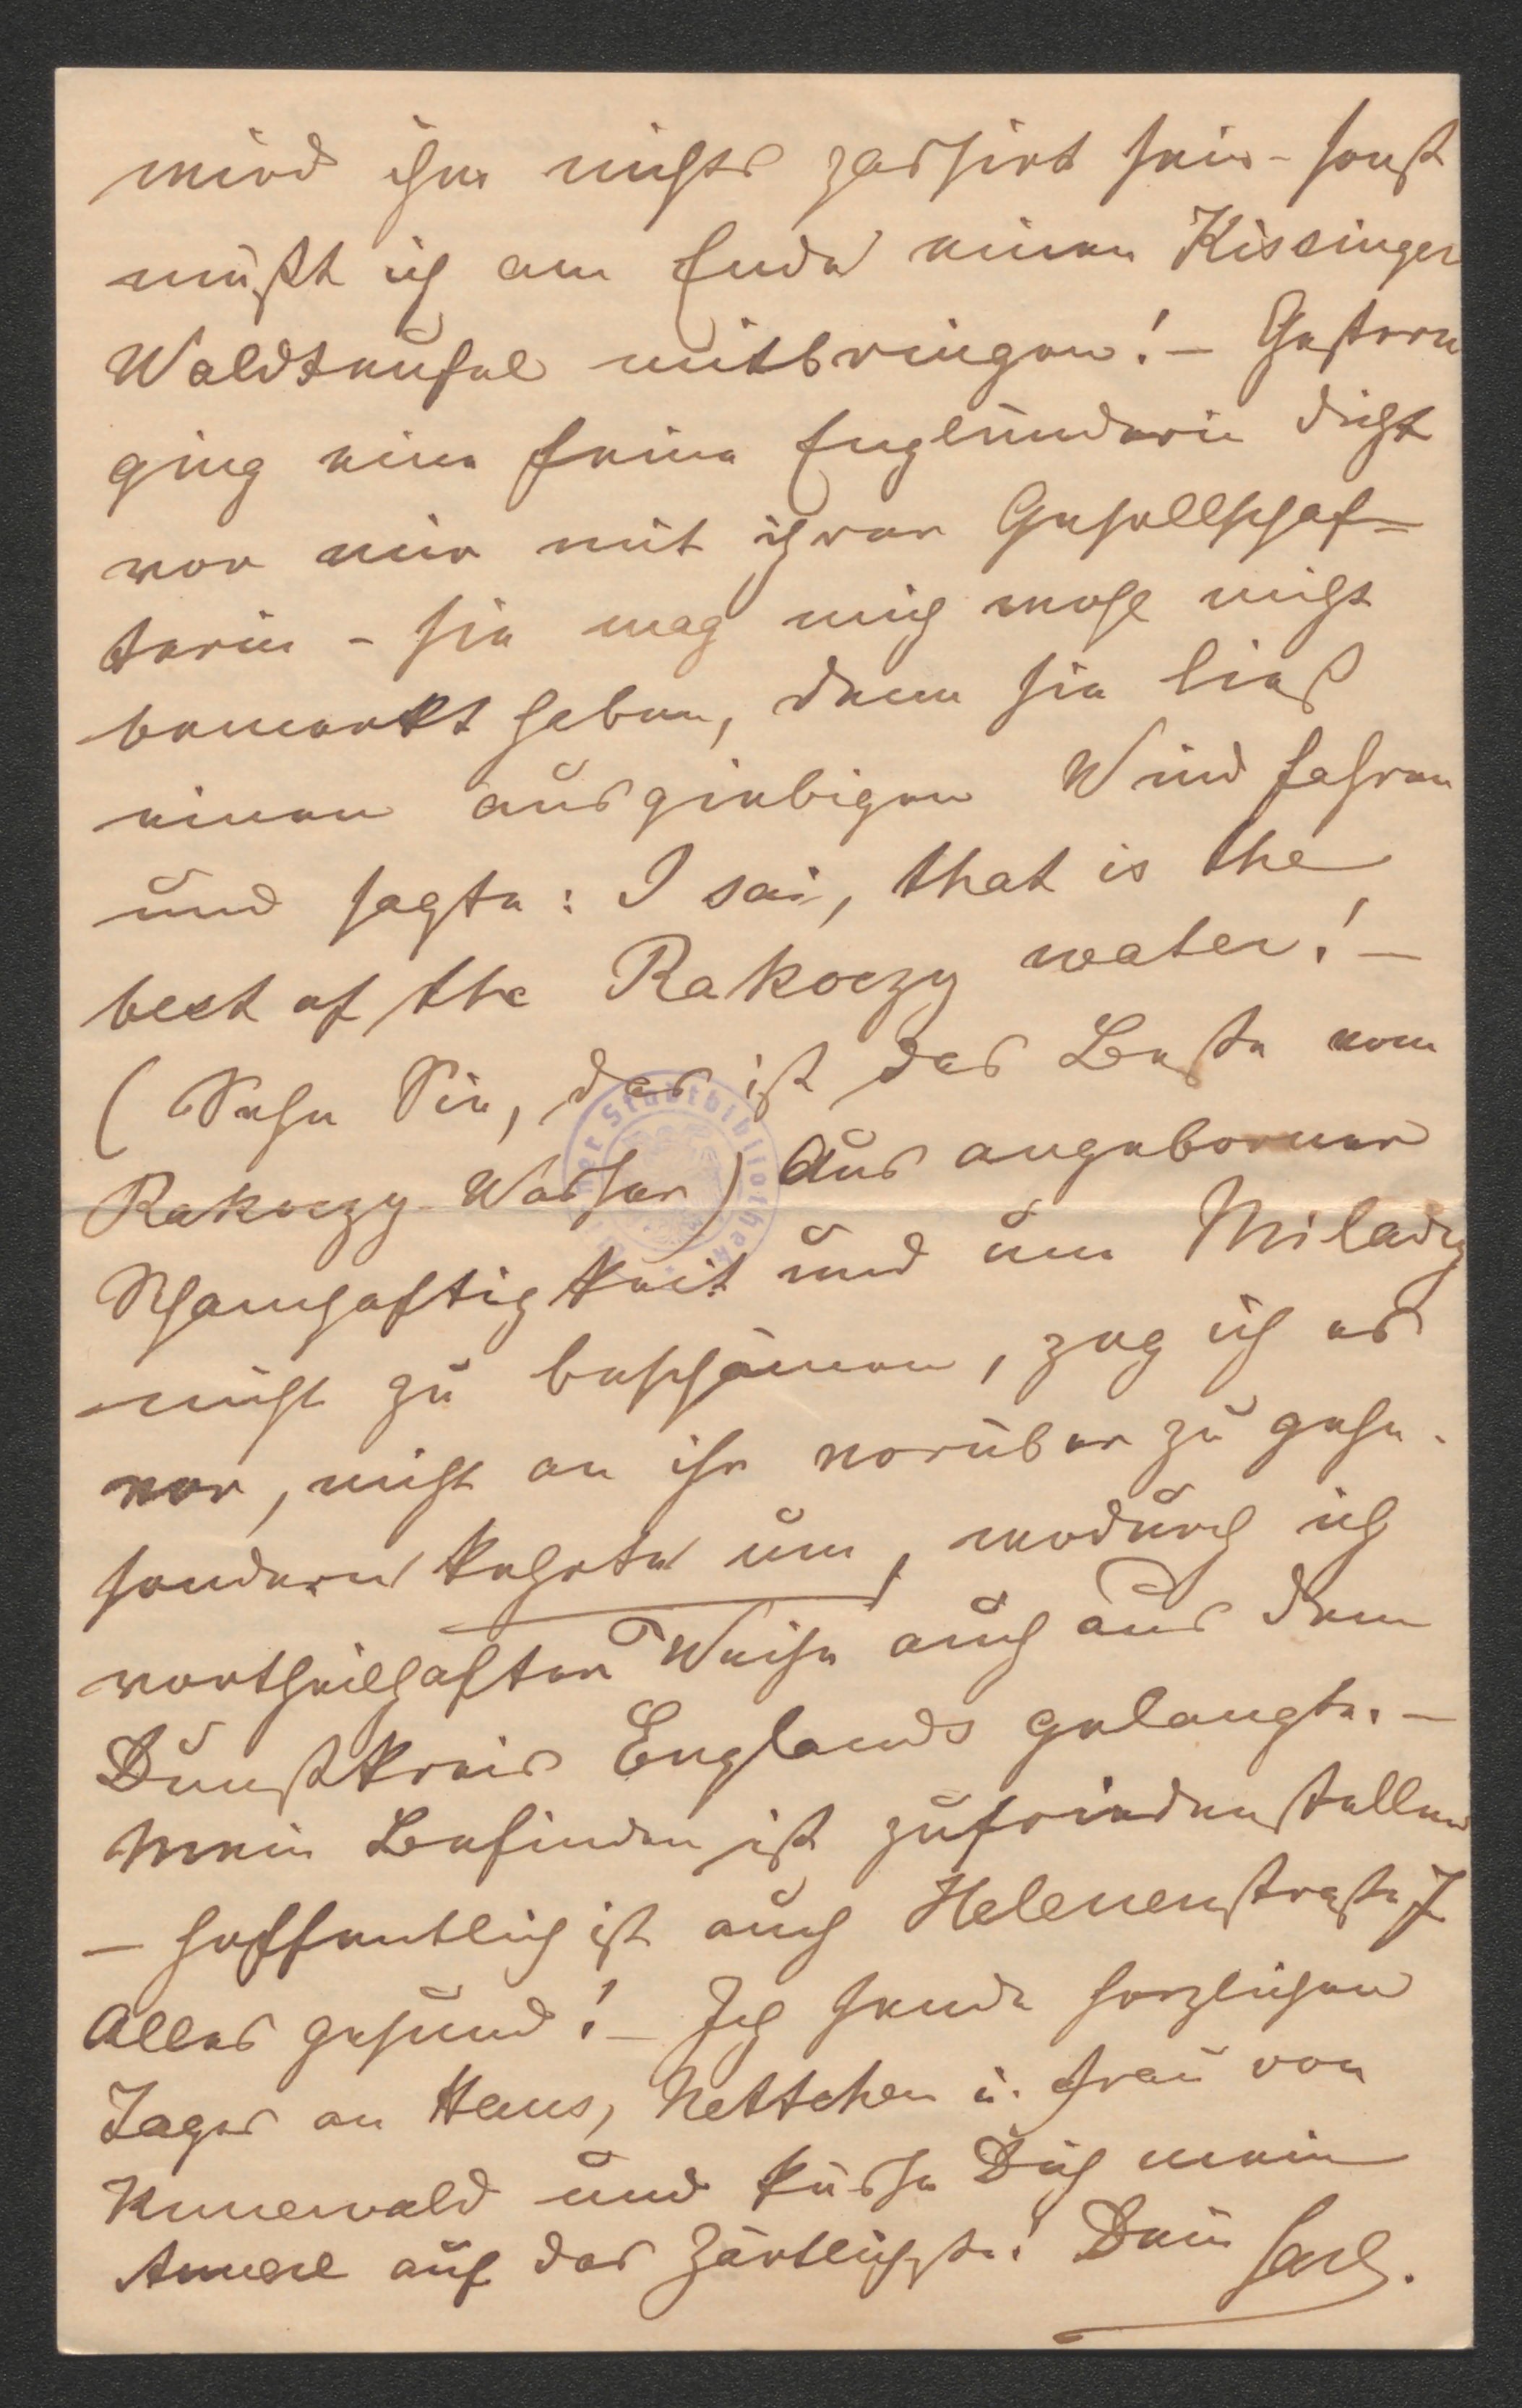 wird ihm nichts passirt sein - sonst
müßt ich am Ende einen Kissinger
Waldteufel mitbringen! - Gestern
ging eine feine Engländerin dicht
vor mir mit ihrer Gesellschaf-
terin - sie mag mich wohl nicht
bemerkt haben, denn sie ließ
einen ausgiebigen Wind fahren
und sagte: I sai, that is the
best of the Rakoczy water! -
(Sehn Sie, das ist das Beste vom
Rakoczy-Wasser) Aus angeborner
Schamhaftigkeit und um Milady
nicht zu beschämen, zog ich es
vor, nicht an ihr vorüber zu gehn.
sondern kehrte um, wodurch ich
vortheilhafter Weise auch aus dem
Dunstkreis Englands gelangte. -
Mein Befinden ist zufriedenstellend
- hoffentlich ist auch Helenenstraße 7
Alles gesund! - Ich sende herzlichen
Jager an Hans, Nettchen u. Frau von
Kunewald und küsse Dich mein
Annerl auf das Zärtlichste! Dein Carl.